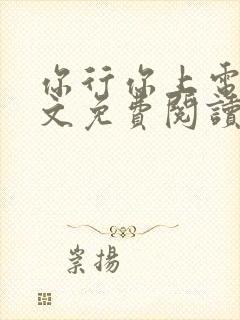 你行你上電
文免費閱讀
崇揚